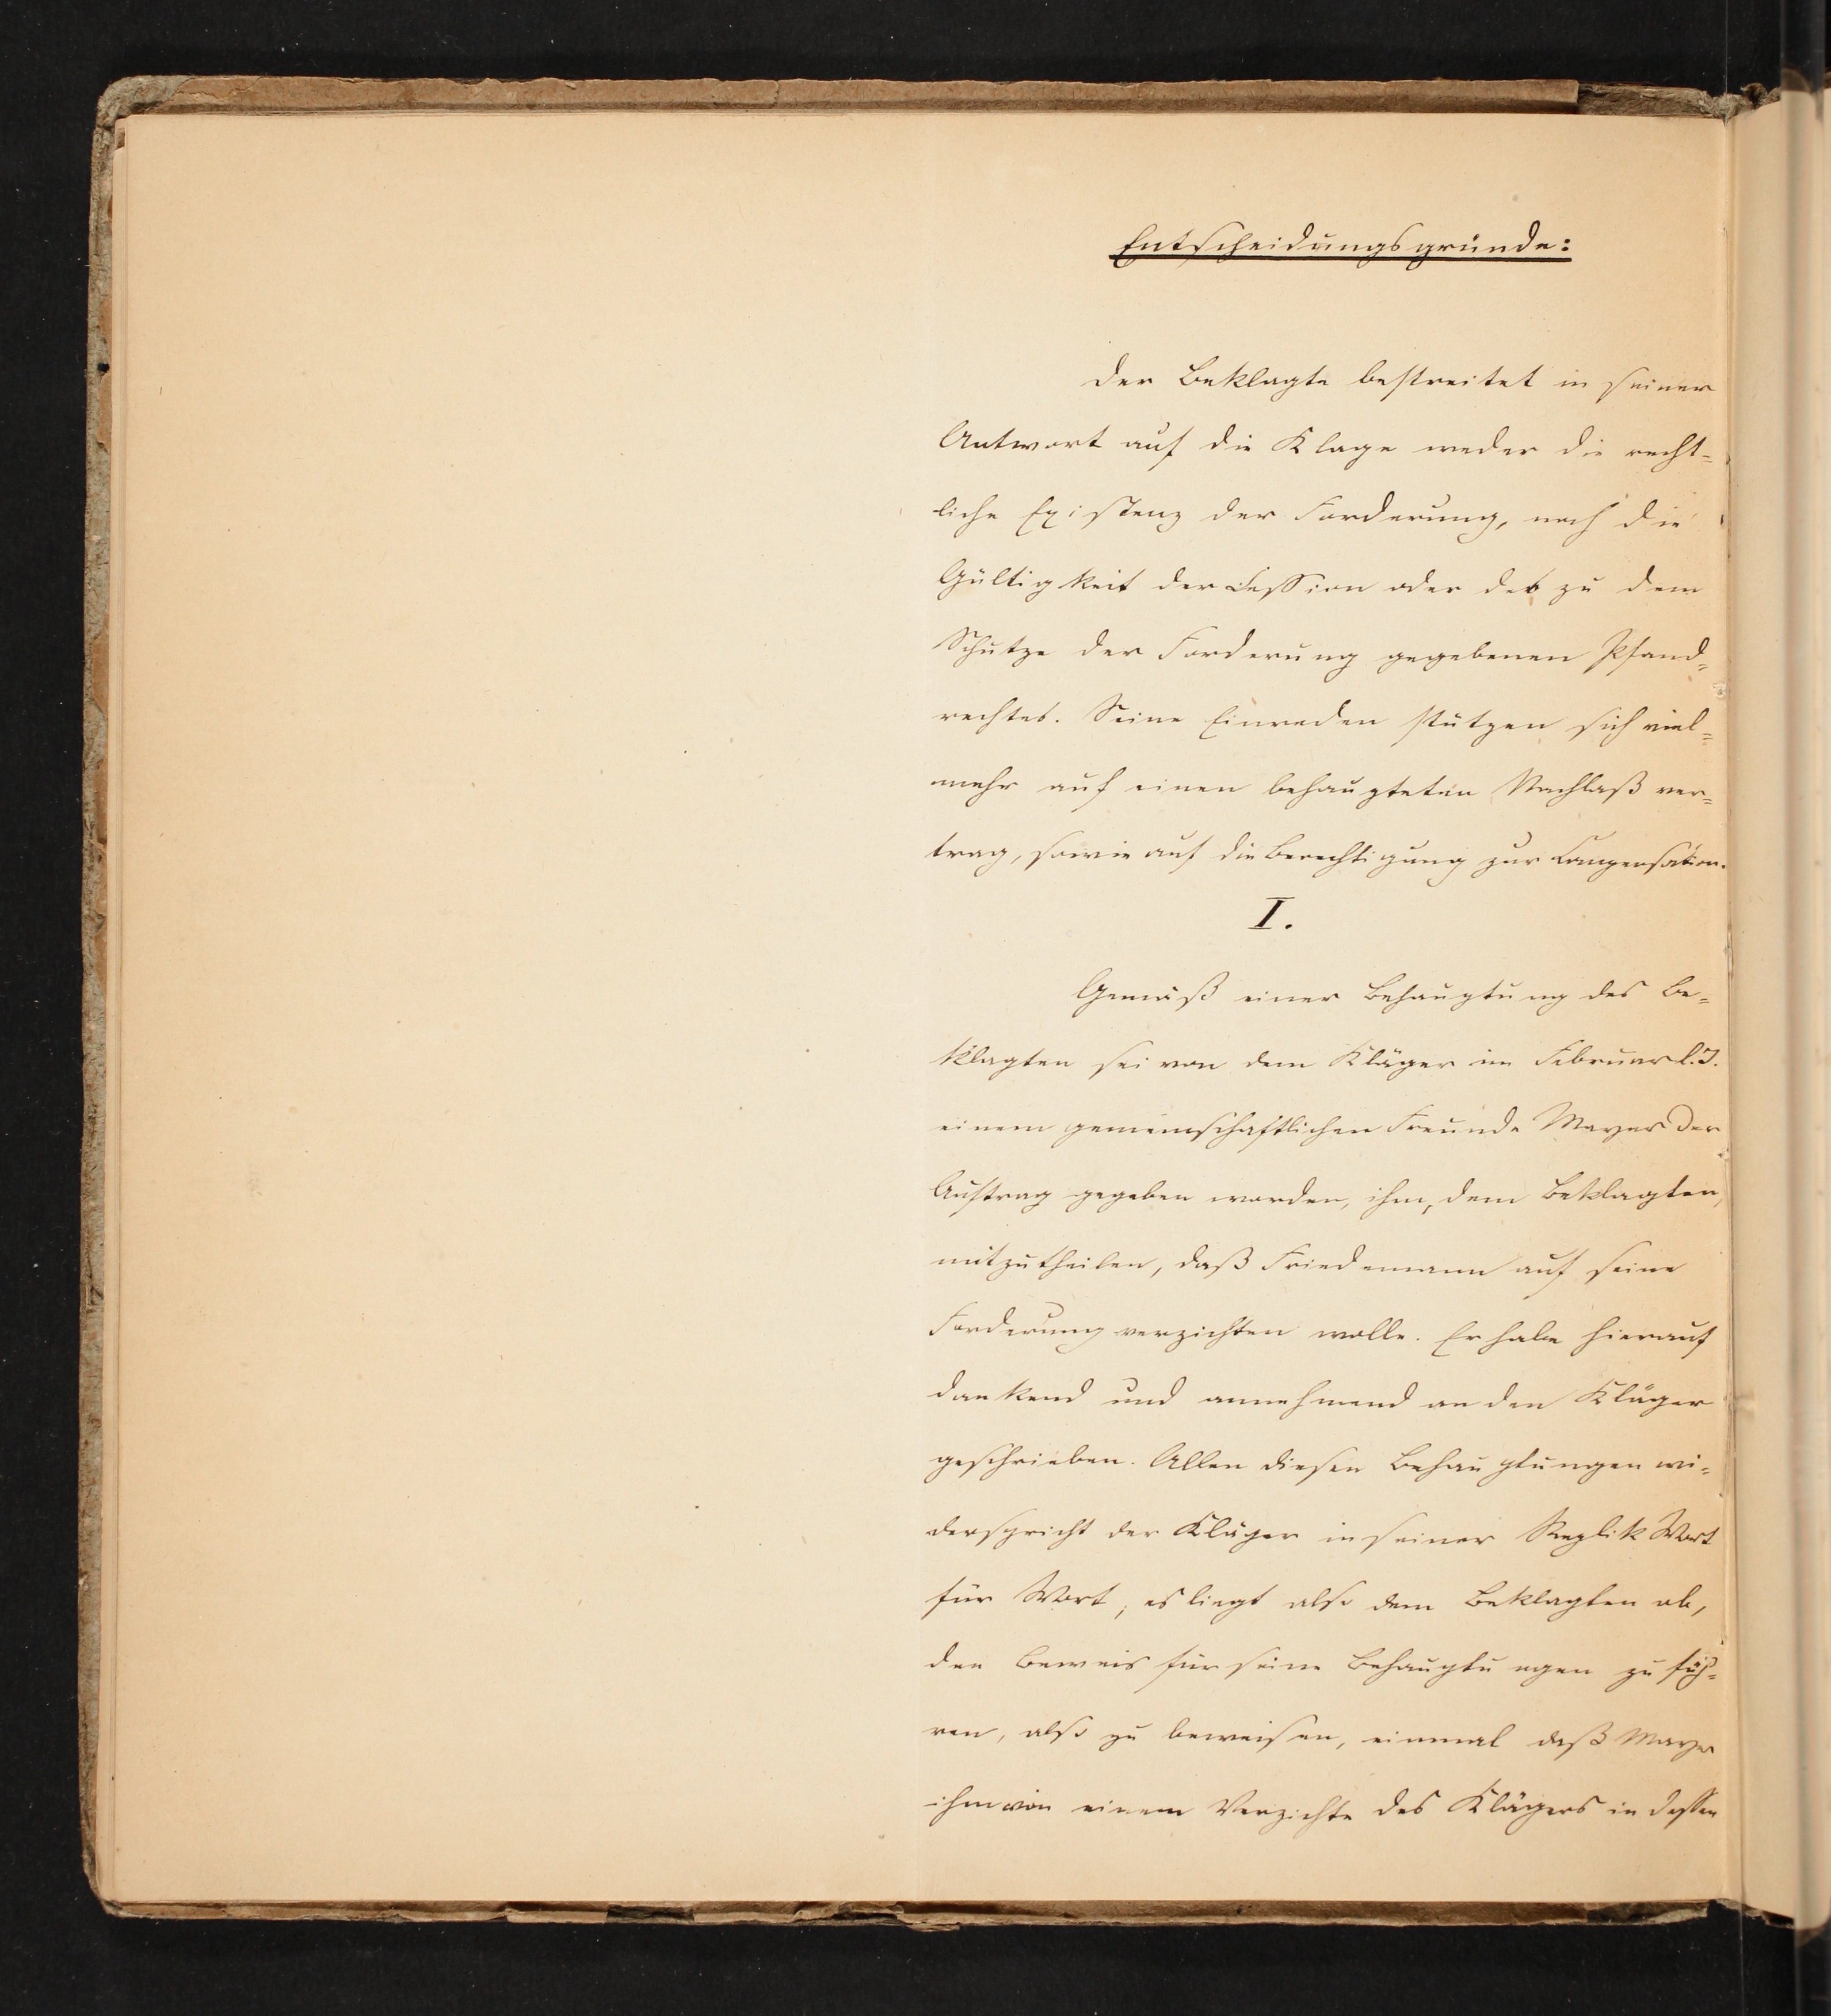 Entscheidungsgründe:
Der Beklagte bestreitet in seiner
Antwort auf die Klage weder die recht=
liche Existenz der Forderung, noch die
Gültigkeit der Cession oder des zu dem
Schutze der Forderung gegebenen Pfand=
rechtes. Seine Einreden stützen sich viel=
mehr auf einen behaupteten Nachlaß ver=
trag, sowie auf die Berechtigung zur Compensation.
I.
Gemäß einer Behauptung des Be=
klagten sei von dem Kläger im Februar l. J.
einem gemeinschaftlichen Freunde Mayer der
Auftrag gegeben worden, ihm, dem Beklagten,
mitzutheilen, daß Friedemann auf seine
Forderung verzichten wolle. Er habe hierauf
dankend und annehmend an den Kläger
geschrieben. Allen diesen Behauptungen wi=
derspricht der Kläger in seiner Replik Wort
für Wort, es liegt also dem Beklagten ob,
den Beweis für seine Behauptungen zu füh=
ren, also zu beweisen, einmal daß Mayer
ihm von einem Verzichte des Klägers in dessen